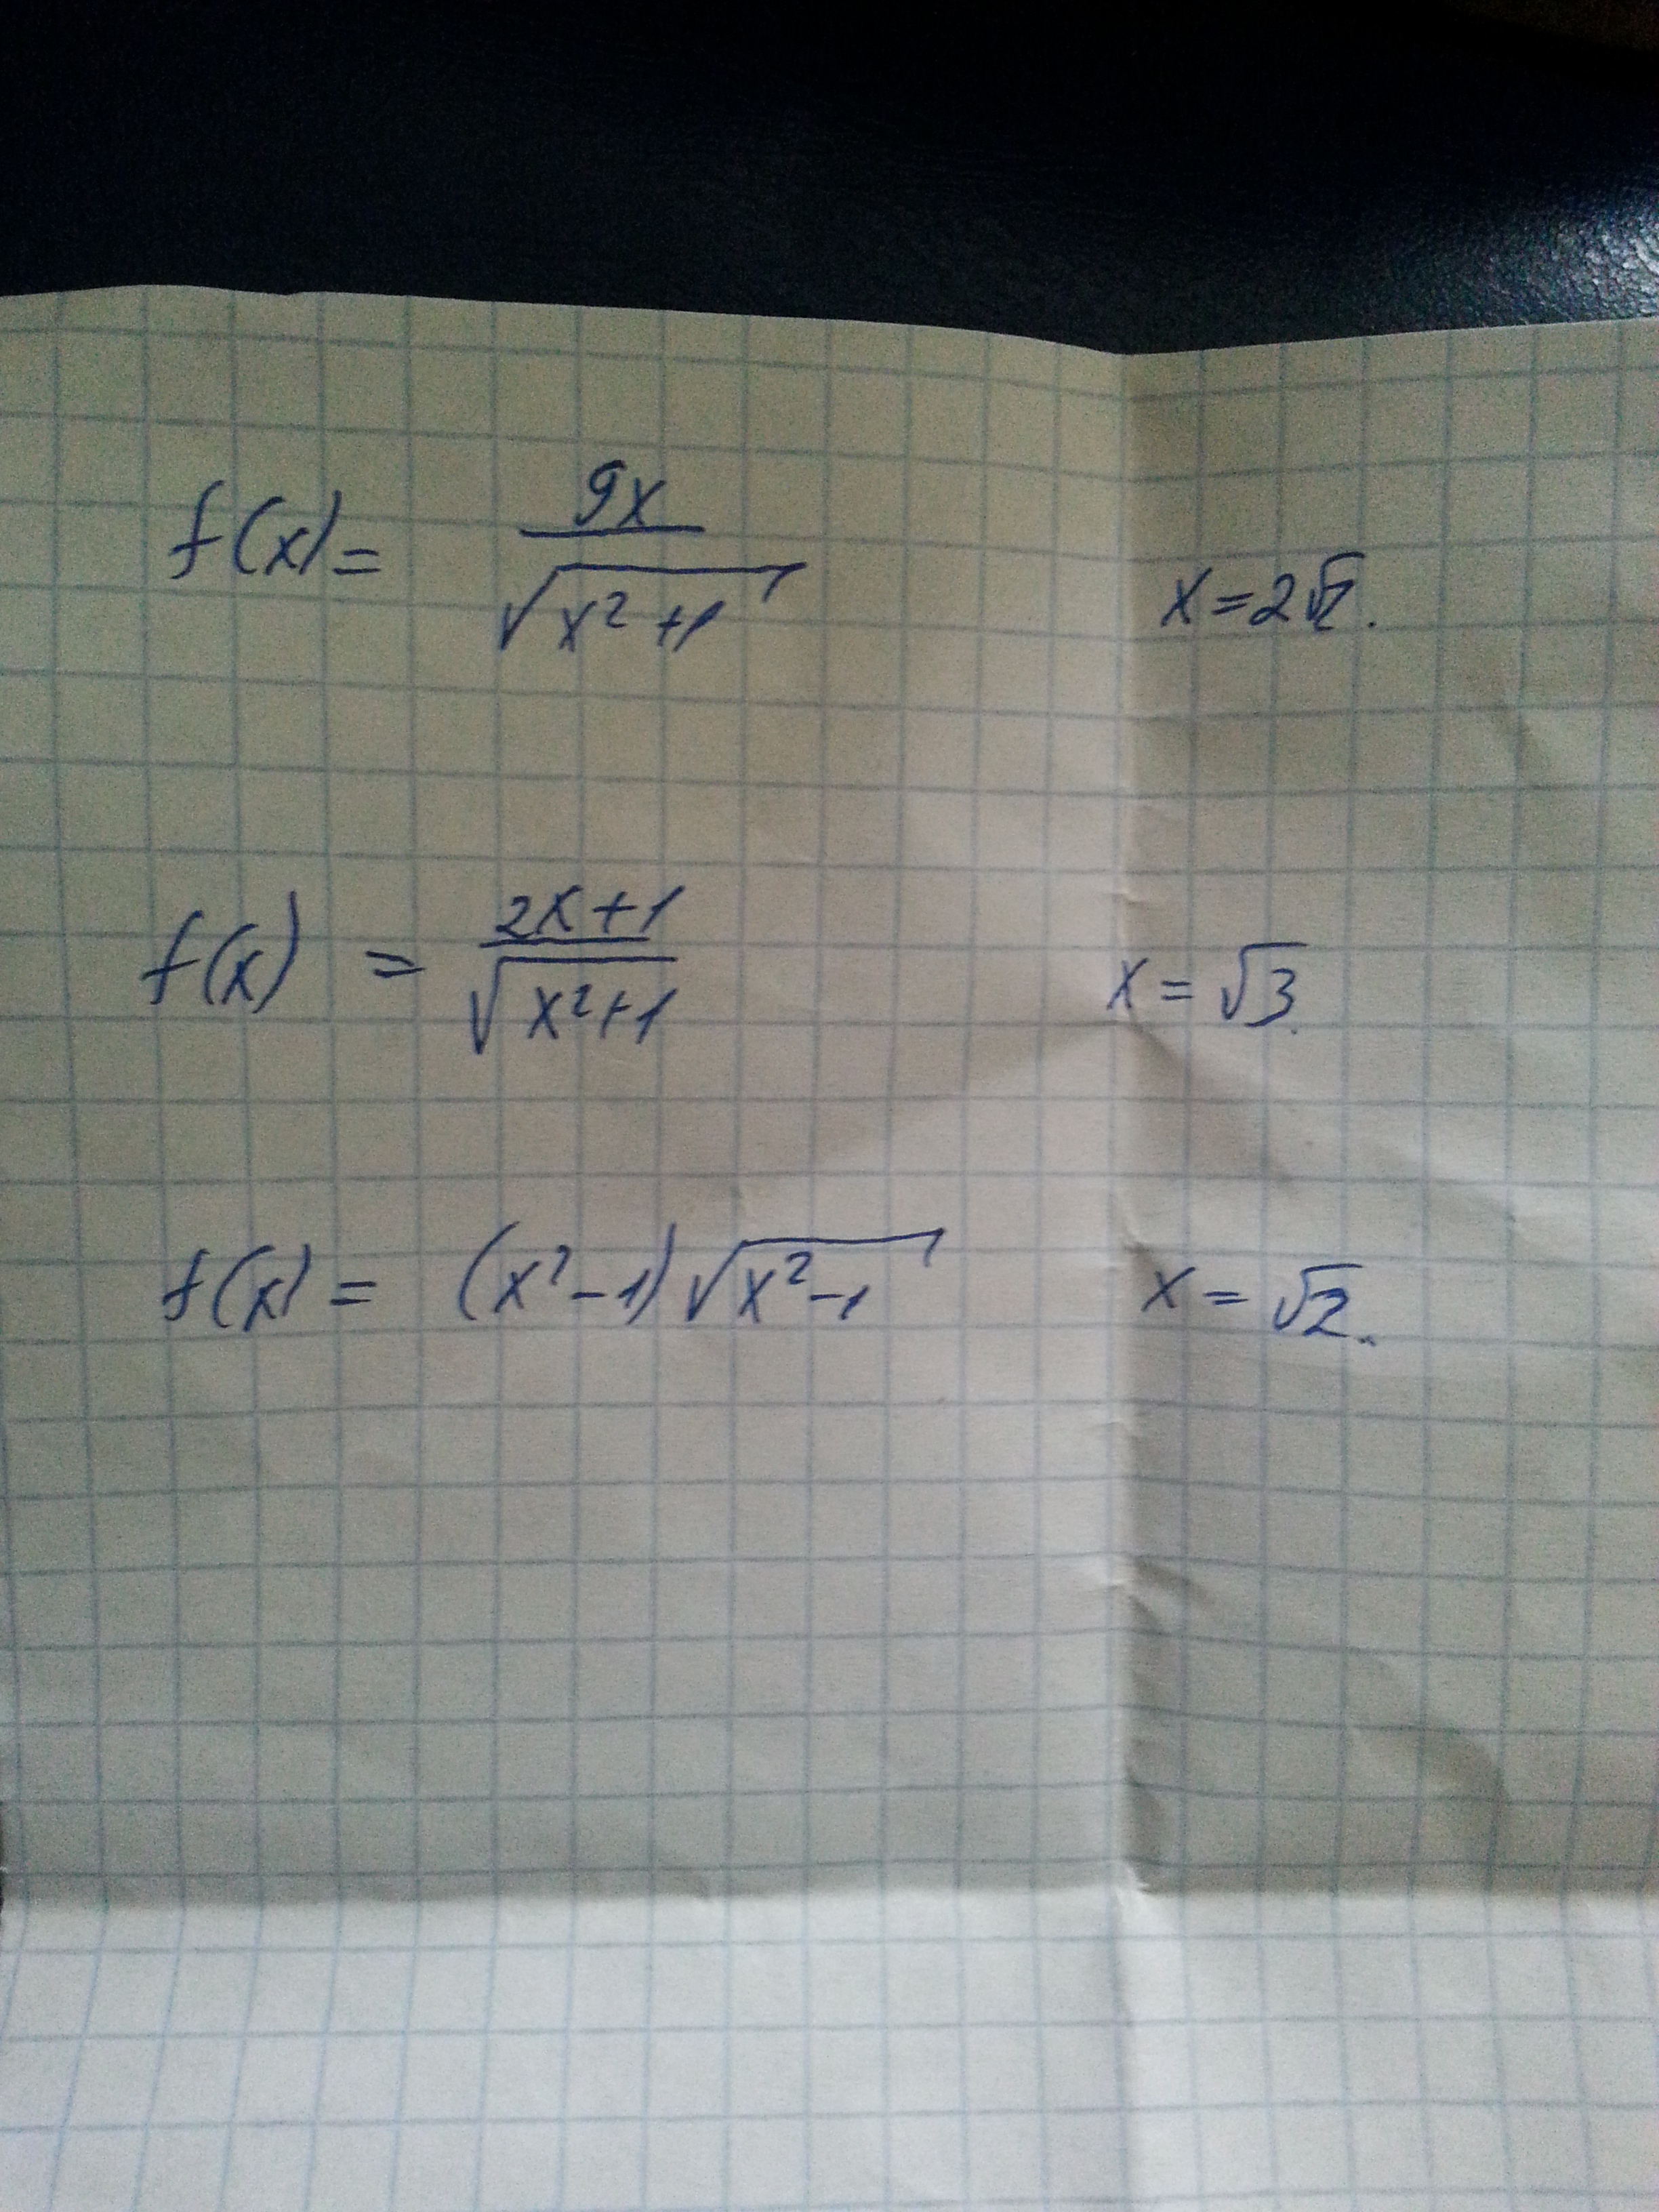 f(x) = 9x / √(x² + 1) x = 2√2.
f(x) = 2x+1 / √(x²+1) x = √3.
f(x) = (x² - 1) √(x² - 1) x = √2.